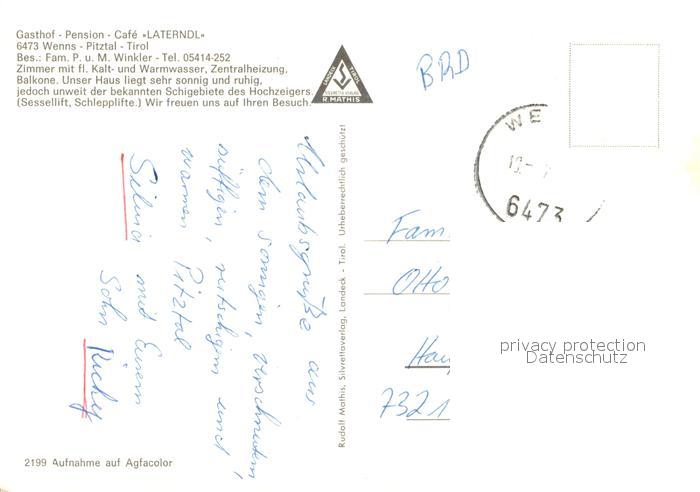 Gasthof - Pension - Café »LATERNDL«
6473 Wenns - Pitztal - Tirol
Bes.: Fam. P. u. M. Winkler - Tel. 05414-252
Zimmer mit fl. Kalt- und Warmwasser, Zentralheizung,
Balkone. Unser Haus liegt sehr sonnig und ruhig,
jedoch unweit der bekannten Schigebiete des Hochzeigers.
(Sessellift, Schlepplifte.) Wir freuen uns auf Ihren Besuch.
LANDECK TIROL
SILVRETTA VERLAG
R. MATHIS
BRD
WE
6473
Urlaubsgrüße aus
dem sonnigen, verschneiten,
süffigen, rutschigen und
warmen Pitztal
Silvia mit Eurem
Sohn Richy
Rudolf Mathis, Silvrettaverlag, Landeck - Tirol. Urheberrechtlich geschützt!
Fam.
Otto
Hau
7321
privacy protection
Datenschutz
2199 Aufnahme auf Agfacolor